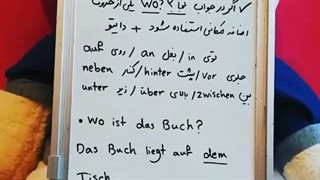 ✓ اگر در جواب کجا؟ ?wo یکی از حروف
اضافه مکانی استفاده شود + داتیو
auf روی / an بغل / in توی
neben کنار / hinter پشت / vor جلوی
unter زیر / über بالای / zwischen بین
• Wo ist das Buch?
Das Buch liegt auf dem
Tisch